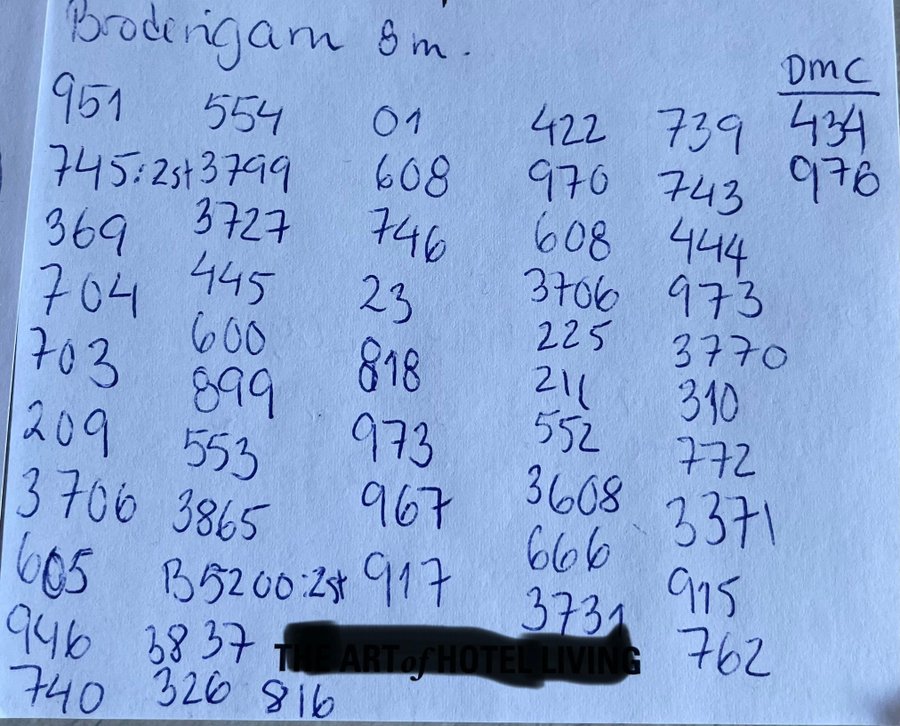 Broderigarn 8m.
DMC
951 554 01 422 739 434
745:2st 3799 608 970 743 976
369 3727 746 608 444
704 445 23 3706 973
703 600 818 225 3770
209 899 973 211 310
3706 553 967 552 772
605 3865 917 3608 3371
946 B5200:2st 666 915
740 3837 3731 762
326 816
THE ART of HOTEL LIVING